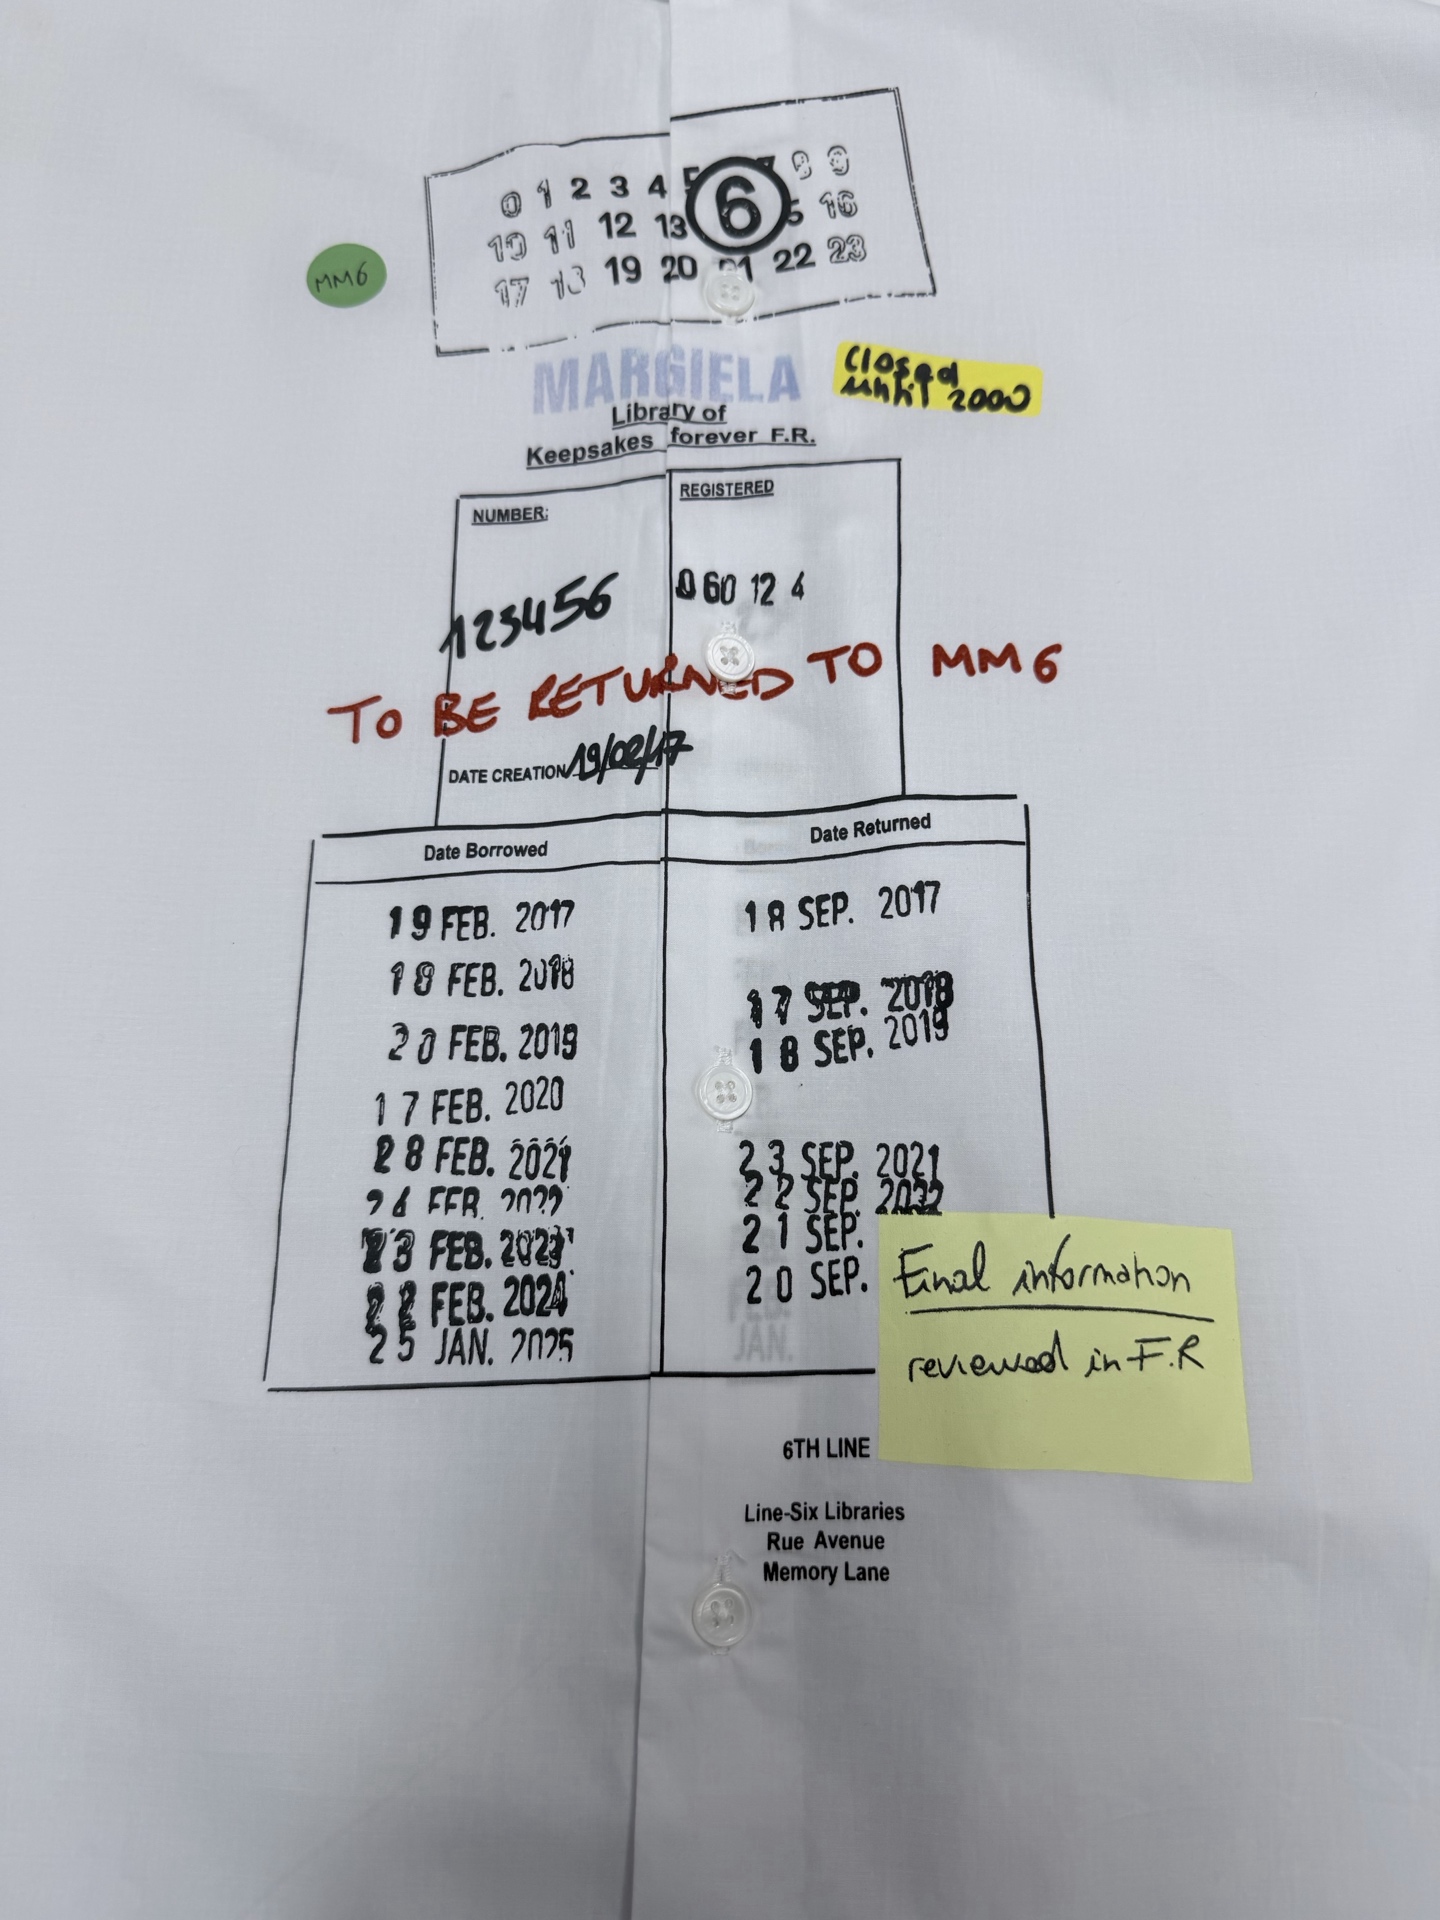 0 1 2 3 4 5 6 7 8 9
10 11 12 13 15 16
17 18 19 20 21 22 23
MM6
MARGIELA
Closed
until 2000
Library of
Keepsakes forever F.R.
NUMBER:
REGISTERED
123456
060 12 4
TO BE RETURNED TO MM6
DATE CREATION 19/02/17
Date Borrowed
Date Returned
19 FEB. 2017
18 SEP. 2017
18 FEB. 2018
17 SEP. 2018
20 FEB. 2019
18 SEP. 2019
17 FEB. 2020
28 FEB. 2021
23 SEP. 2021
24 FEB. 2022
22 SEP. 2022
23 FEB. 2023
21 SEP.
22 FEB. 2024
20 SEP.
25 JAN. 2025
Final information
reviewed in F.R
6TH LINE
Line-Six Libraries
Rue Avenue
Memory Lane